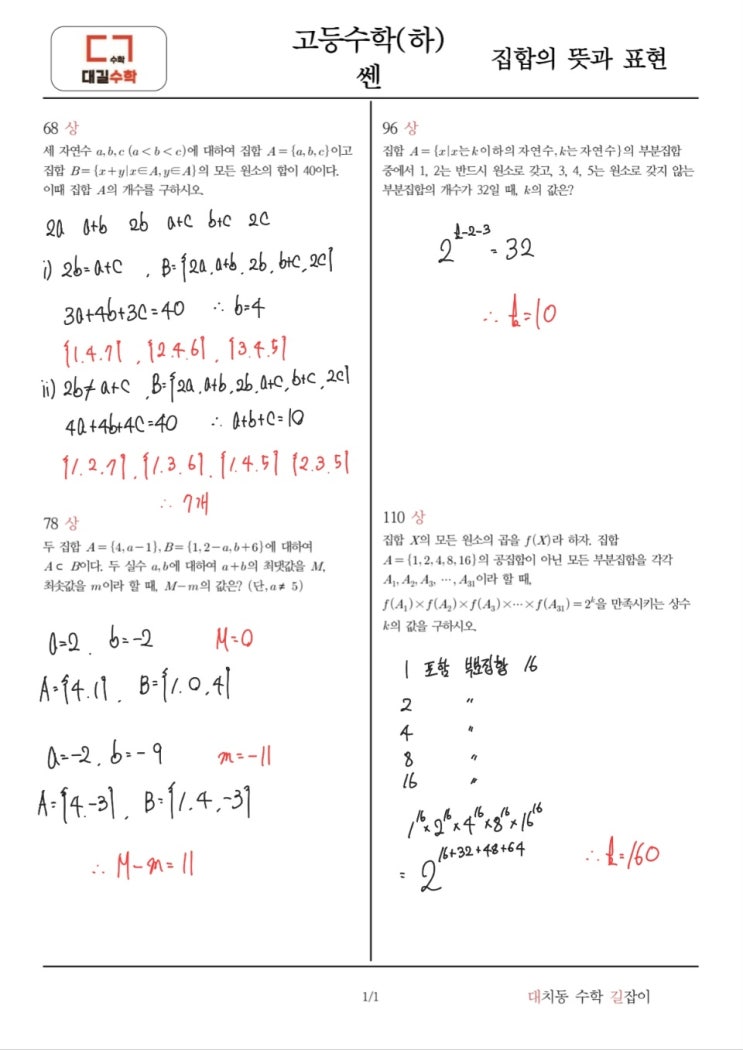 수학
대길수학
고등수학(하)
쎈
집합의 뜻과 표현
68 상
세 자연수 a, b, c (a < b < c)에 대하여 집합 A = {a, b, c}이고
집합 B = {x+y|x∈A, y∈A}의 모든 원소의 합이 40이다.
이때 집합 A의 개수를 구하시오.
2a a+b 2b a+c b+c 2c
i) 2b=a+c , B={2a, a+b, 2b, b+c, 2c}
3a+4b+3c=40 ∴ b=4
{1.4.7} , {2.4.6} , {3.4.5}
ii) 2b≠a+c , B={2a, a+b, 2b, a+c, b+c, 2c}
4a+4b+4c=40 ∴ a+b+c=10
{1.2.7} , {1.3.6} , {1.4.5} {2.3.5}
∴ 7개
78 상
두 집합 A = {4, a-1}, B = {1, 2-a, b+6}에 대하여
A⊂B이다. 두 실수 a, b에 대하여 a+b의 최댓값을 M,
최솟값을 m이라 할 때, M-m의 값은? (단, a≠5)
a=2 , b=-2 M=0
A={4.1} , B={1.0.4}
a=-2, b=-9 m=-11
A={4.-3} , B={1.4.-3}
∴ M-m=11
96 상
집합 A = {x|x는 k이하의 자연수, k는 자연수}의 부분집합
중에서 1, 2는 반드시 원소로 갖고, 3, 4, 5는 원소로 갖지 않는
부분집합의 개수가 32일 때, k의 값은?
2^{k-2-3} = 32
∴ k=10
110 상
집합 X의 모든 원소의 곱을 f(X)라 하자. 집합
A = {1, 2, 4, 8, 16}의 공집합이 아닌 모든 부분집합을 각각
A₁, A₂, A₃, ⋯, A₃₁이라 할 때,
f(A₁)×f(A₂)×f(A₃)×⋯×f(A₃₁) = 2^k을 만족시키는 상수
k의 값을 구하시오.
1 포함 부분집합 16
2 〃
4 〃
8 〃
16 〃
1^{16}×2^{16}×4^{16}×8^{16}×16^{16}
= 2^{16+32+48+64}
∴ k=160
1/1
대치동 수학 길잡이